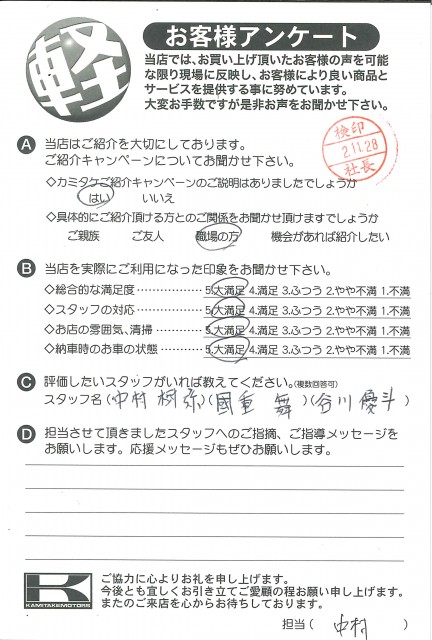 軽
お客様アンケート
当店では、お買い上げ頂いたお客様の声を可能
な限り現場に反映し、お客様により良い商品と
サービスを提供する事に努めています。
大変お手数ですが是非お声をお聞かせ下さい。
検印
2.11.28
社長
A 当店はご紹介を大切にしております。
ご紹介キャンペーンについてお聞かせ下さい。
◇カミタケご紹介キャンペーンのご説明はありましたでしょうか
はい いいえ
◇具体的にご紹介頂ける方とのご関係をお聞かせ頂けますでしょうか
ご親族 ご友人 職場の方 機会があれば紹介したい
B 当店を実際にご利用になった印象をお聞かせ下さい。
◇総合的な満足度 ……………… 5.大満足 4.満足 3.ふつう 2.やや不満 1.不満
◇スタッフの対応 ……………… 5.大満足 4.満足 3.ふつう 2.やや不満 1.不満
◇お店の雰囲気、清掃 ………… 5.大満足 4.満足 3.ふつう 2.やや不満 1.不満
◇納車時のお車の状態 ………… 5.大満足 4.満足 3.ふつう 2.やや不満 1.不満
C 評価したいスタッフがいれば教えてください。(複数回答可)
スタッフ名(中村 樹弥)(國重 舞)(谷川 優斗)
D 担当させて頂きましたスタッフへのご指摘、ご指導メッセージを
お願いします。応援メッセージもぜひお願いします。
K
KAMITAKEMOTORS
ご協力に心よりお礼を申し上げます。
今後とも宜しくお引き立てご愛顧の程お願い申し上げます。
またのご来店を心からお待ちしております。
担当( 中村 )